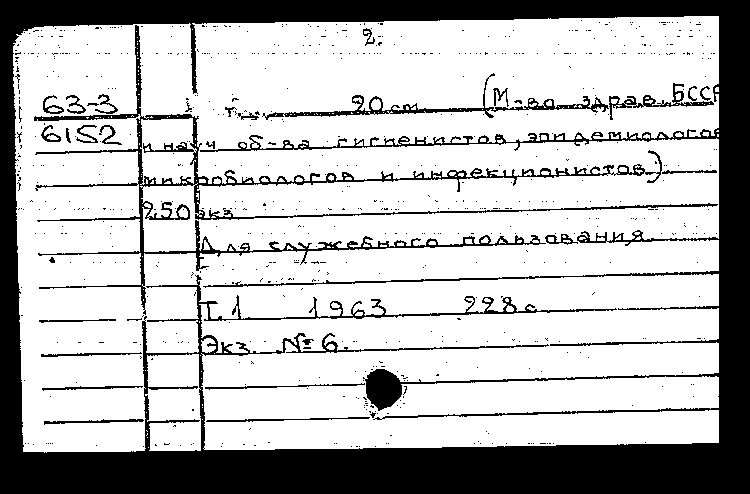 2.
63-3 т. 20 см (М-во здрав. БССР
6152 и науч об-ва гигиенистов, эпидемиологов
микробиологов и инфекционистов)
250 экз
Для служебного пользования
Т.1 1963 228 с
Экз. № 6.